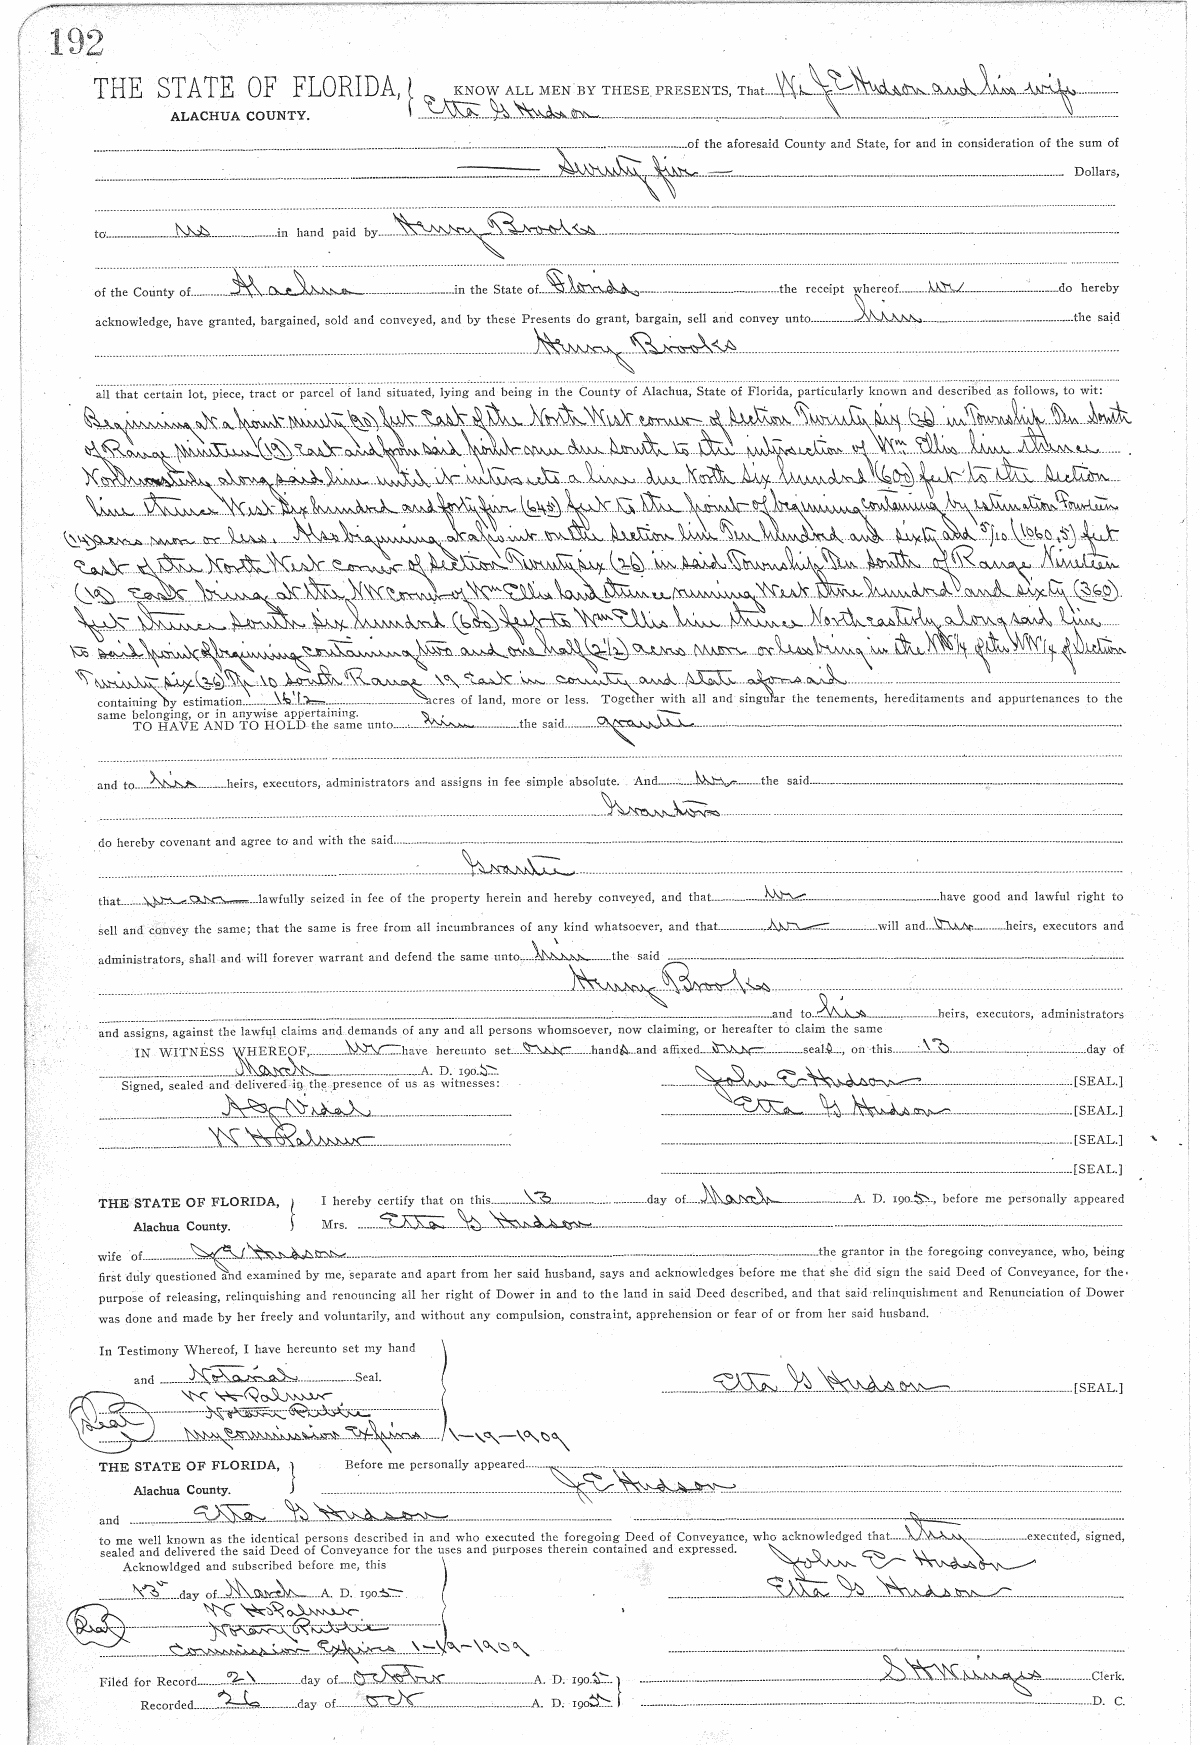 192
THE STATE OF FLORIDA, KNOW ALL MEN BY THESE PRESENTS, That We J E Hudson and his wife
ALACHUA COUNTY. Etta G Hudson
of the aforesaid County and State, for and in consideration of the sum of
Seventy five Dollars,
to us in hand paid by Henry Brooks
of the County of Alachua in the State of Florida the receipt whereof we do hereby
acknowledge, have granted, bargained, sold and conveyed, and by these Presents do grant, bargain, sell and convey unto him the said
Henry Brooks
all that certain lot, piece, tract or parcel of land situated, lying and being in the County of Alachua, State of Florida, particularly known and described as follows, to wit:
Beginning at a point ninety (90) feet East of the North West corner of Section Twenty six (26) in Township Ten South
of Range Nineteen (19) East and from said point run due south to the intersection of Wm Ellis line thence
along said line until it intersects a line due North Six hundred (600) feet to the section
line thence West Six hundred and forty five (645) feet to the point of beginning containing by estimation Fourteen
(14) acres more or less. Also beginning at a point on the section line Ten hundred and sixty and 5/10 (1060,5) feet
East of the North West corner of Section Twenty six (26) in said Township Ten South of Range Nineteen
(19) East being at the NW corner of Wm Ellis land thence running West three hundred and sixty (360)
feet thence South Six hundred (600) feet to Wm Ellis line thence North easterly along said line
to said point of beginning containing two and one half (2½) acres more or less being in the NW¼ of the NW¼ of Section
Twenty six (26) Tp 10 South Range 19 East in county and state aforesaid
containing by estimation 16½ acres of land, more or less. Together with all and singular the tenements, hereditaments and appurtenances to the
same belonging, or in anywise appertaining.
TO HAVE AND TO HOLD the same unto him the said grantee
and to his heirs, executors, administrators and assigns in fee simple absolute. And we the said
Grantors
do hereby covenant and agree to and with the said
Grantee
that we are lawfully seized in fee of the property herein and hereby conveyed, and that we have good and lawful right to
sell and convey the same; that the same is free from all incumbrances of any kind whatsoever, and that we will and our heirs, executors and
administrators, shall and will forever warrant and defend the same unto him the said
Henry Brooks
and to his heirs, executors, administrators
and assigns, against the lawful claims and demands of any and all persons whomsoever, now claiming, or hereafter to claim the same
IN WITNESS WHEREOF, We have hereunto set our hands and affixed our seals, on this 13 day of
March A. D. 1905
Signed, sealed and delivered in the presence of us as witnesses: John E Hudson [SEAL.]
A J Vidal Etta G Hudson [SEAL.]
W H Palmer [SEAL.]
[SEAL.]
THE STATE OF FLORIDA, I hereby certify that on this 13 day of March A. D. 1905, before me personally appeared
Alachua County. Mrs. Etta G Hudson
wife of J E Hudson the grantor in the foregoing conveyance, who, being
first duly questioned and examined by me, separate and apart from her said husband, says and acknowledges before me that she did sign the said Deed of Conveyance, for the
purpose of releasing, relinquishing and renouncing all her right of Dower in and to the land in said Deed described, and that said relinquishment and Renunciation of Dower
was done and made by her freely and voluntarily, and without any compulsion, constraint, apprehension or fear of or from her said husband.
In Testimony Whereof, I have hereunto set my hand
and Notarial Seal. Etta G Hudson [SEAL.]
W H Palmer
Seal Notary Public
My commission Expires 1-19-1909
THE STATE OF FLORIDA, Before me personally appeared
Alachua County. J E Hudson
and Etta G Hudson
to me well known as the identical persons described in and who executed the foregoing Deed of Conveyance, who acknowledged that they executed, signed,
sealed and delivered the said Deed of Conveyance for the uses and purposes therein contained and expressed.
Acknowldged and subscribed before me, this John E Hudson
13th day of March A. D. 1905 Etta G Hudson
W H Palmer
Seal Notary Public
Commission Expires 1-19-1909
Filed for Record 21 day of October A. D. 1905 S H Wienges Clerk.
Recorded 26 day of Oct A. D. 1905 D. C.